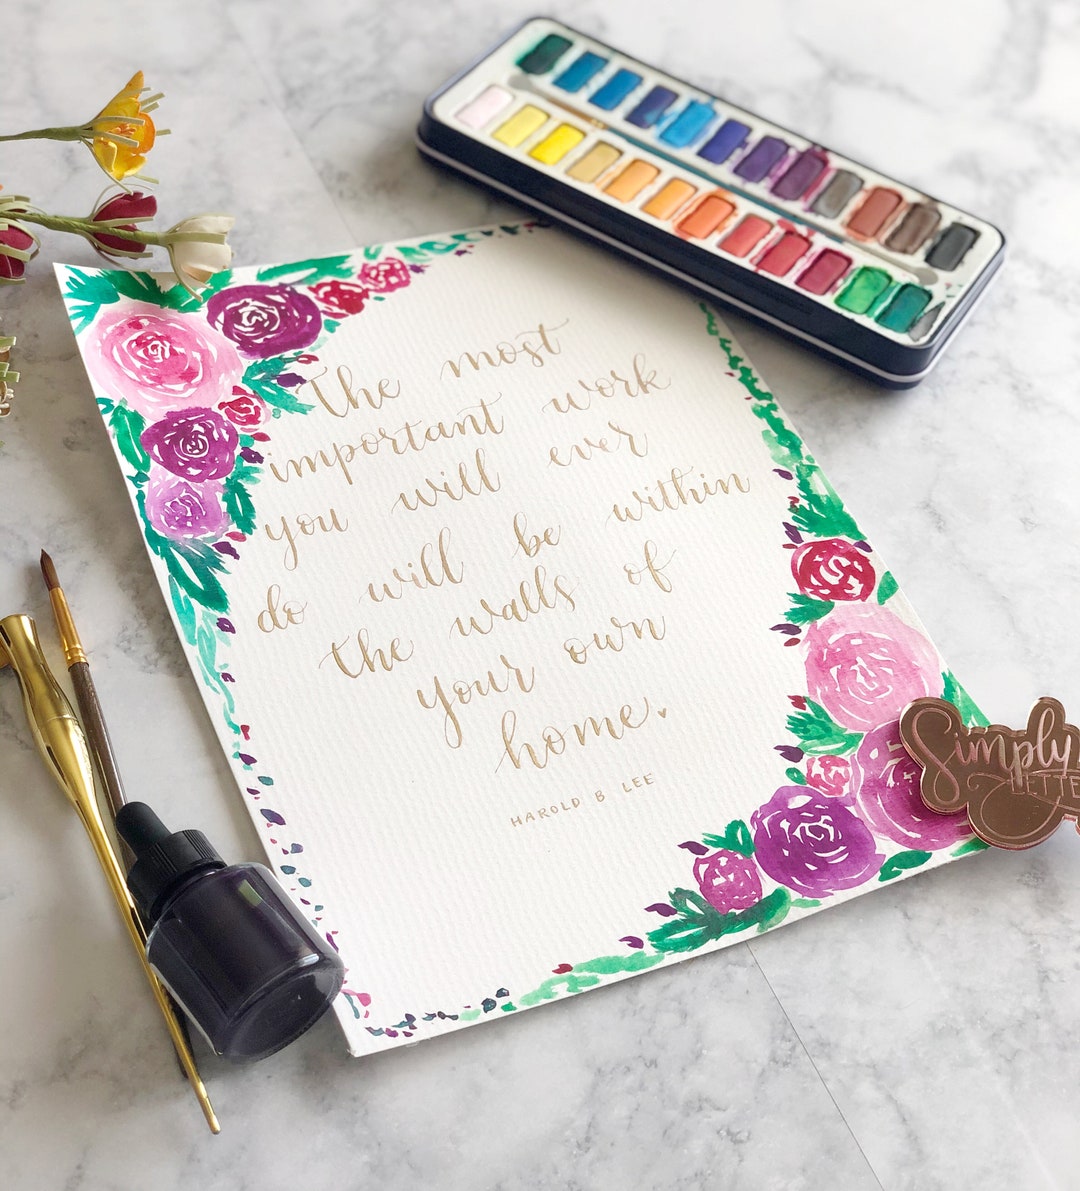 The most
important work
you will ever
do will be within
the walls of
your own
home.
HAROLD B LEE
Simply